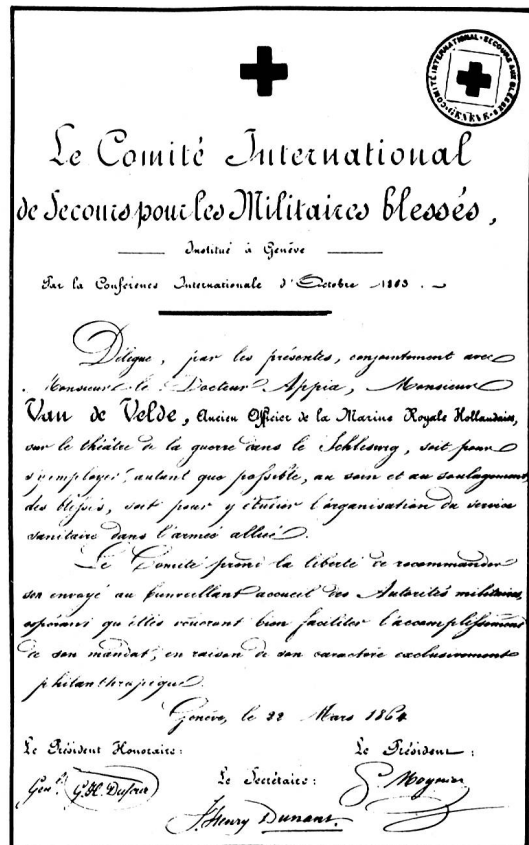 COMITÉ INTERNATIONAL · SECOURS AUX BLESSÉS · GENÈVE
Le Comité International
de Secours pour les Militaires blessés,
Institué à Genève
Par la Conférence Internationale d'Octobre 1863.
Délègue, par les présentes, conjointement avec
Monsieur le Docteur Appia, Monsieur
Van de Velde, Ancien Officier de la Marine Royale Hollandaise,
sur le théâtre de la guerre dans le Schleswig, soit pour
s'employer, autant que possible, au soin et au soulagement
des blessés, soit pour y étudier l'organisation du service
sanitaire dans l'armée alliée.
Le Comité prend la liberté de recommander
son envoyé au bienveillant accueil des Autorités militaires,
espérant qu'elles voudront bien faciliter l'accomplissement
de son mandat, en raison de son caractère exclusivement
philanthropique.
Genève, le 22 Mars 1864
Le Président Honoraire :
Le Président :
Gen^l. G. H. Dufour
Le Secrétaire :
G. Moynier
J. Henry Dunant.